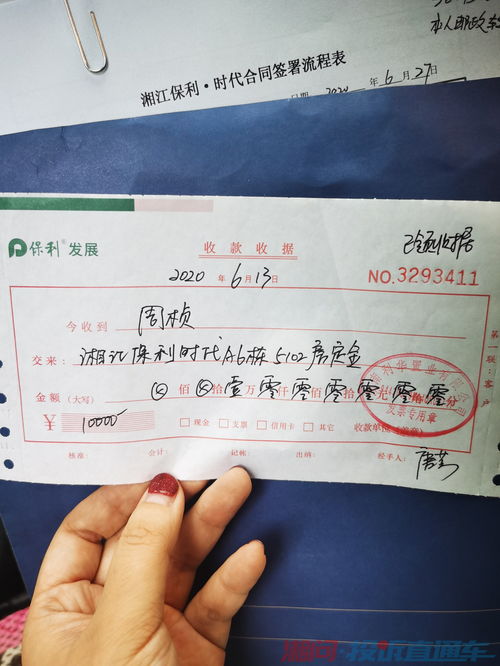 本人
湘江保利·时代合同签署流程表
日期 2020 年 6 月 27 日
保利® 发展
收款收据
2020 年 6 月 13 日
NO.3293411
今收到 周桢
交来: 湘江保利时代A6栋5102房定金
金额(大写) ⊗ 佰 ⊗ 拾 壹 万 零 仟 零 佰 零 拾 零 元 零 角 零 分
¥ 10000 □ 现金 □ 支票 □ 信用卡 □ 其它 收款单位(盖章)
利华置业有限公司
发票专用章
核准: 会计: 记帐: 出纳: 经手人:
第一联:客户
湘网·投诉直通车